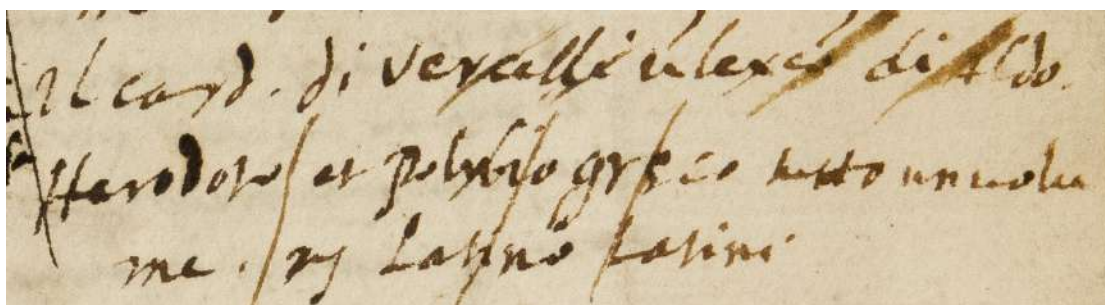 Il card. di Vercelli di Aldo.
Herodoto et Polybio greco tutto un uolu
me. Latino Latini